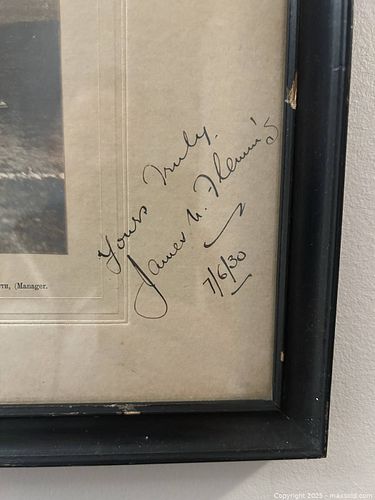 Yours Truly.
James N. Fleming
7/6/30
(Manager.
Copyright 2025 - maxsold.com